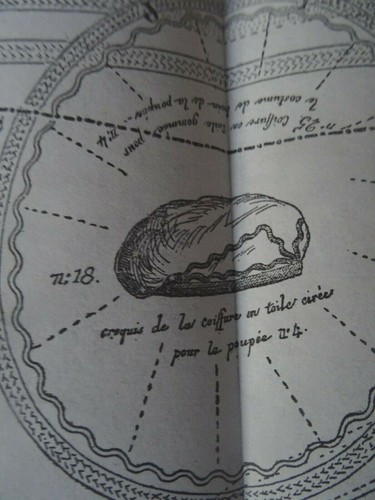 n:25. Coiffure en toile gommée pour
le costume de bain de la poupée n:4.
n:18.
croquis de la coiffure en toile cirée
pour la poupée n:4.